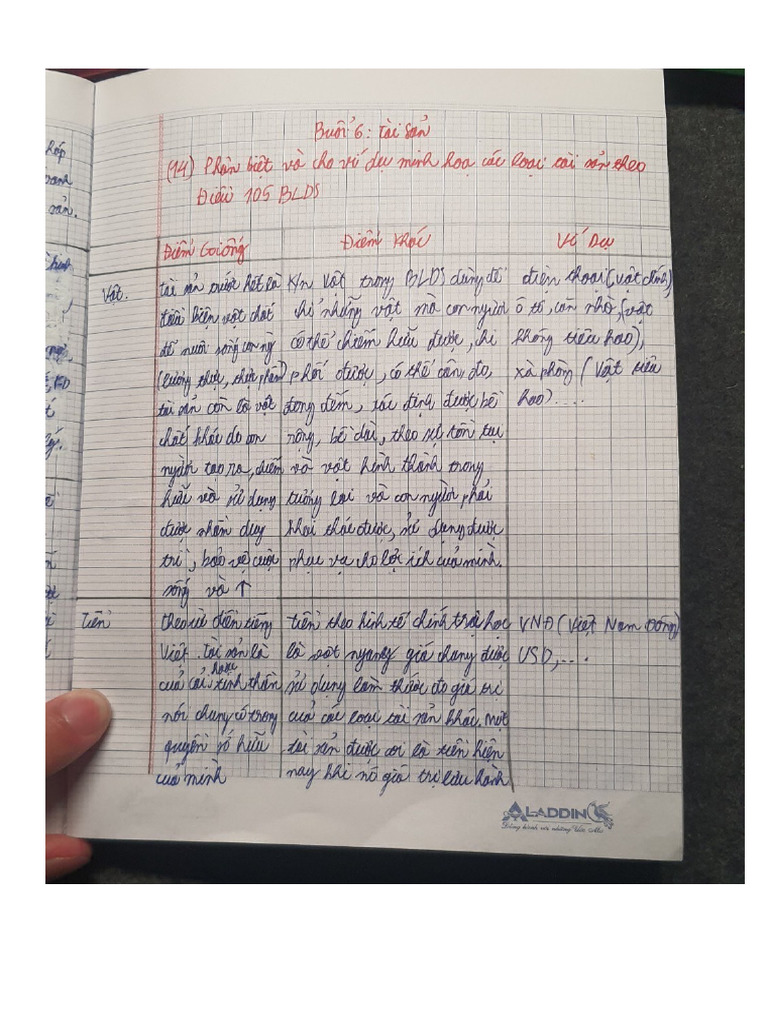 Buổi 6: Tài sản
(14) Phân biệt và cho ví dụ minh hoạ các loại tài sản theo
Điều 105 BLDS
Điểm Giống
Điểm Khác
Ví Dụ
Vật.
tài sản trước hết là
điều kiện vật chất
để nuôi sống con ng
(lương thực, thực phẩm)
tài sản còn là vật
chất khác do con
người tạo ra, chiếm
hữu và sử dụng
được nhằm duy
trì, bảo vệ cuộc
sống và ↑
K/n vật trong BLDS dùng để
chỉ những vật mà con người
có thể chiếm hữu được, chi
phối được, có thể cân đo,
đong đếm, xác định được bề
rộng, bề dài, theo sự tồn tại
và vật hình thành trong
tương lai và con người phải
khai thác được, sử dụng được
phục vụ cho lợi ích của mình.
điện thoại (vật chính)
ô tô, căn nhà, (vật
không tiêu hao),
xà phòng (vật tiêu
hao)....
Tiền
theo từ điển tiếng
Việt. tài sản là
của cải hoặc tinh thần
nói chung có trong
quyền sở hữu
của mình
tiền theo kinh tế chính trị học
là vật ngang giá chung được
sử dụng làm thước đo giá trị
của các loại tài sản khác. một
tài sản được coi là tiền hiện
nay khi nó giá trị lưu hành
VNĐ (Việt Nam Đồng)
USD,....
ALADDIN
Đồng hành với những Ước Mơ
hợp
sản.